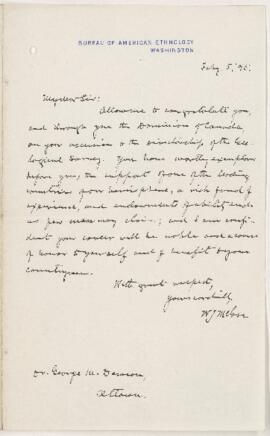 BUREAU OF AMERICAN ETHNOLOGY
WASHINGTON
My dear Sir:
Allow me to congratulate you,
and through you the Dominion of Canada
on your accession to the directorship of the Geo-
logical Survey. You have worthy exemplars
before you, the support of one of the leading
countries of our hemisphere, a rich fund of
experience, and endowments of ability such
as few men may claim; and I am confi-
dent your career will be noble and a source
of honor to yourself and of benefit to your
countrymen.
With great respect,
Yours cordially,
W J McGee
Dr. George M. Dawson,
Ottawa.